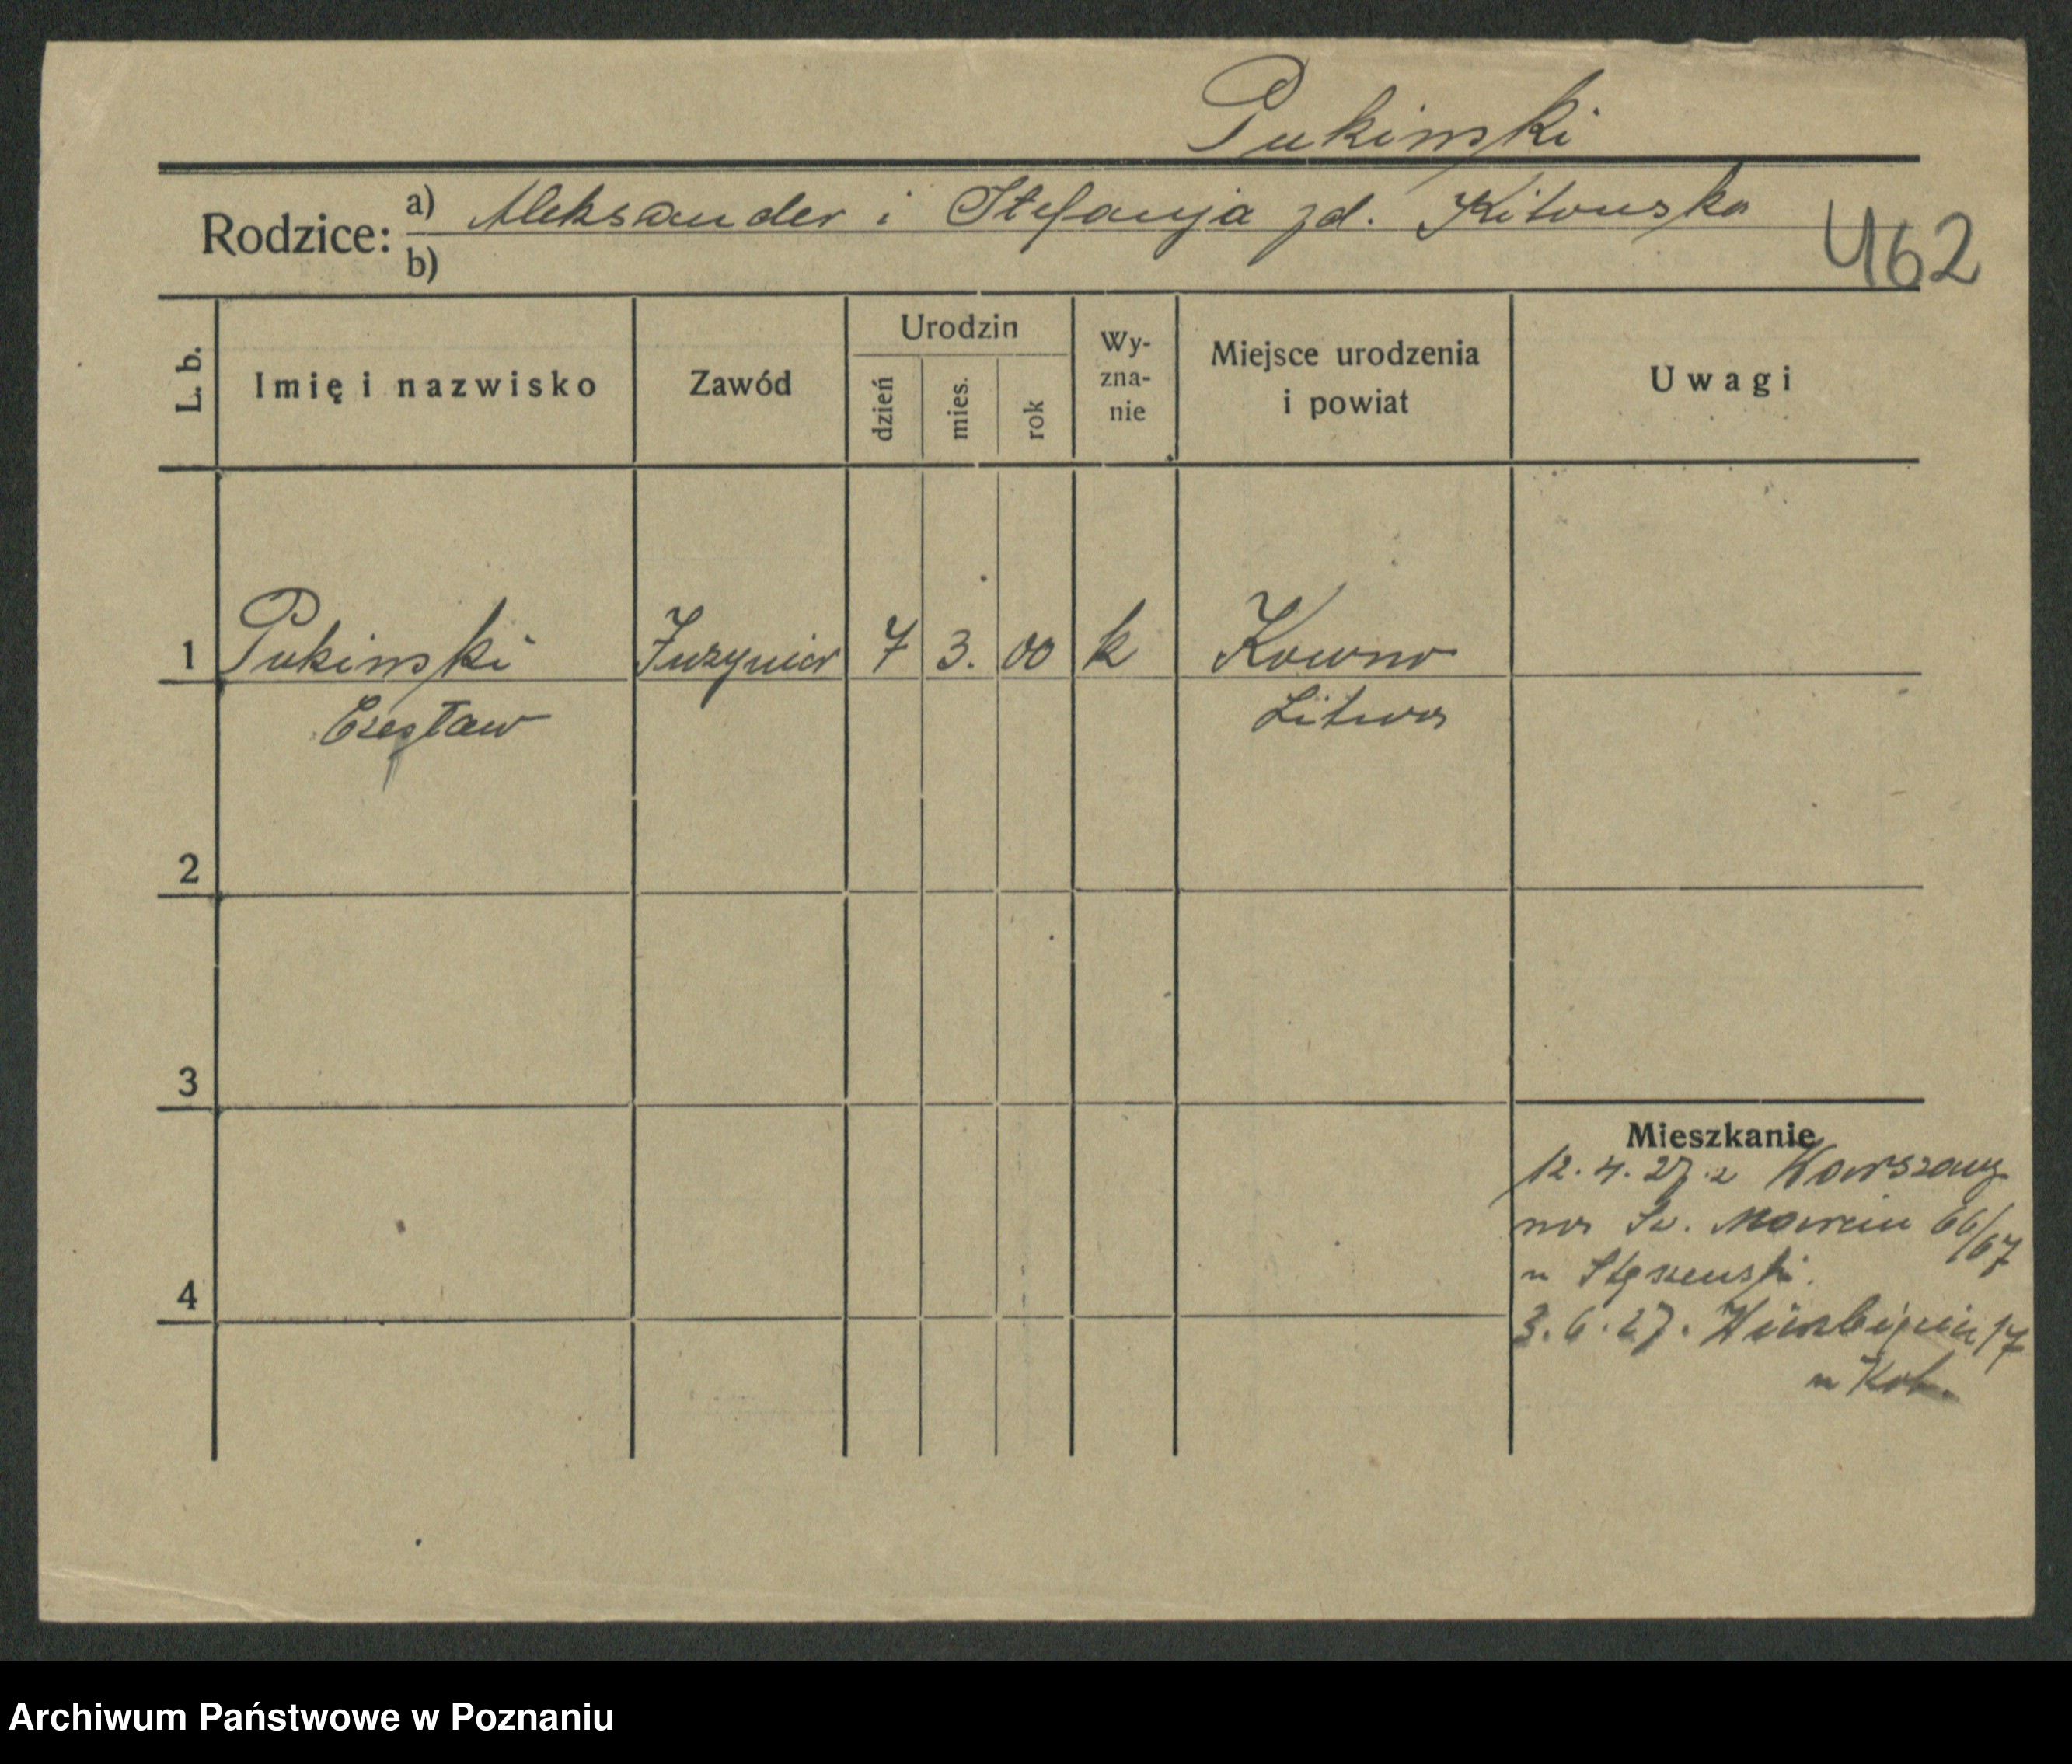 Pukinski
Rodzice: a) Aleksander i Stefanja zd. Kitowska
b)
462
L. b.
Imię i nazwisko
Zawód
Urodzin
dzień
mies.
rok
Wy-
zna-
nie
Miejsce urodzenia
i powiat
Uwagi
1 Pukinski Inzynier 7 3. 00 k Kowno
Czesław Litwa
2
3
4
Mieszkanie
12. 4. 27. z Warszawy
na Sw. Marcin 66/67
u
3. 6. 27. 17
u
Archiwum Państwowe w Poznaniu